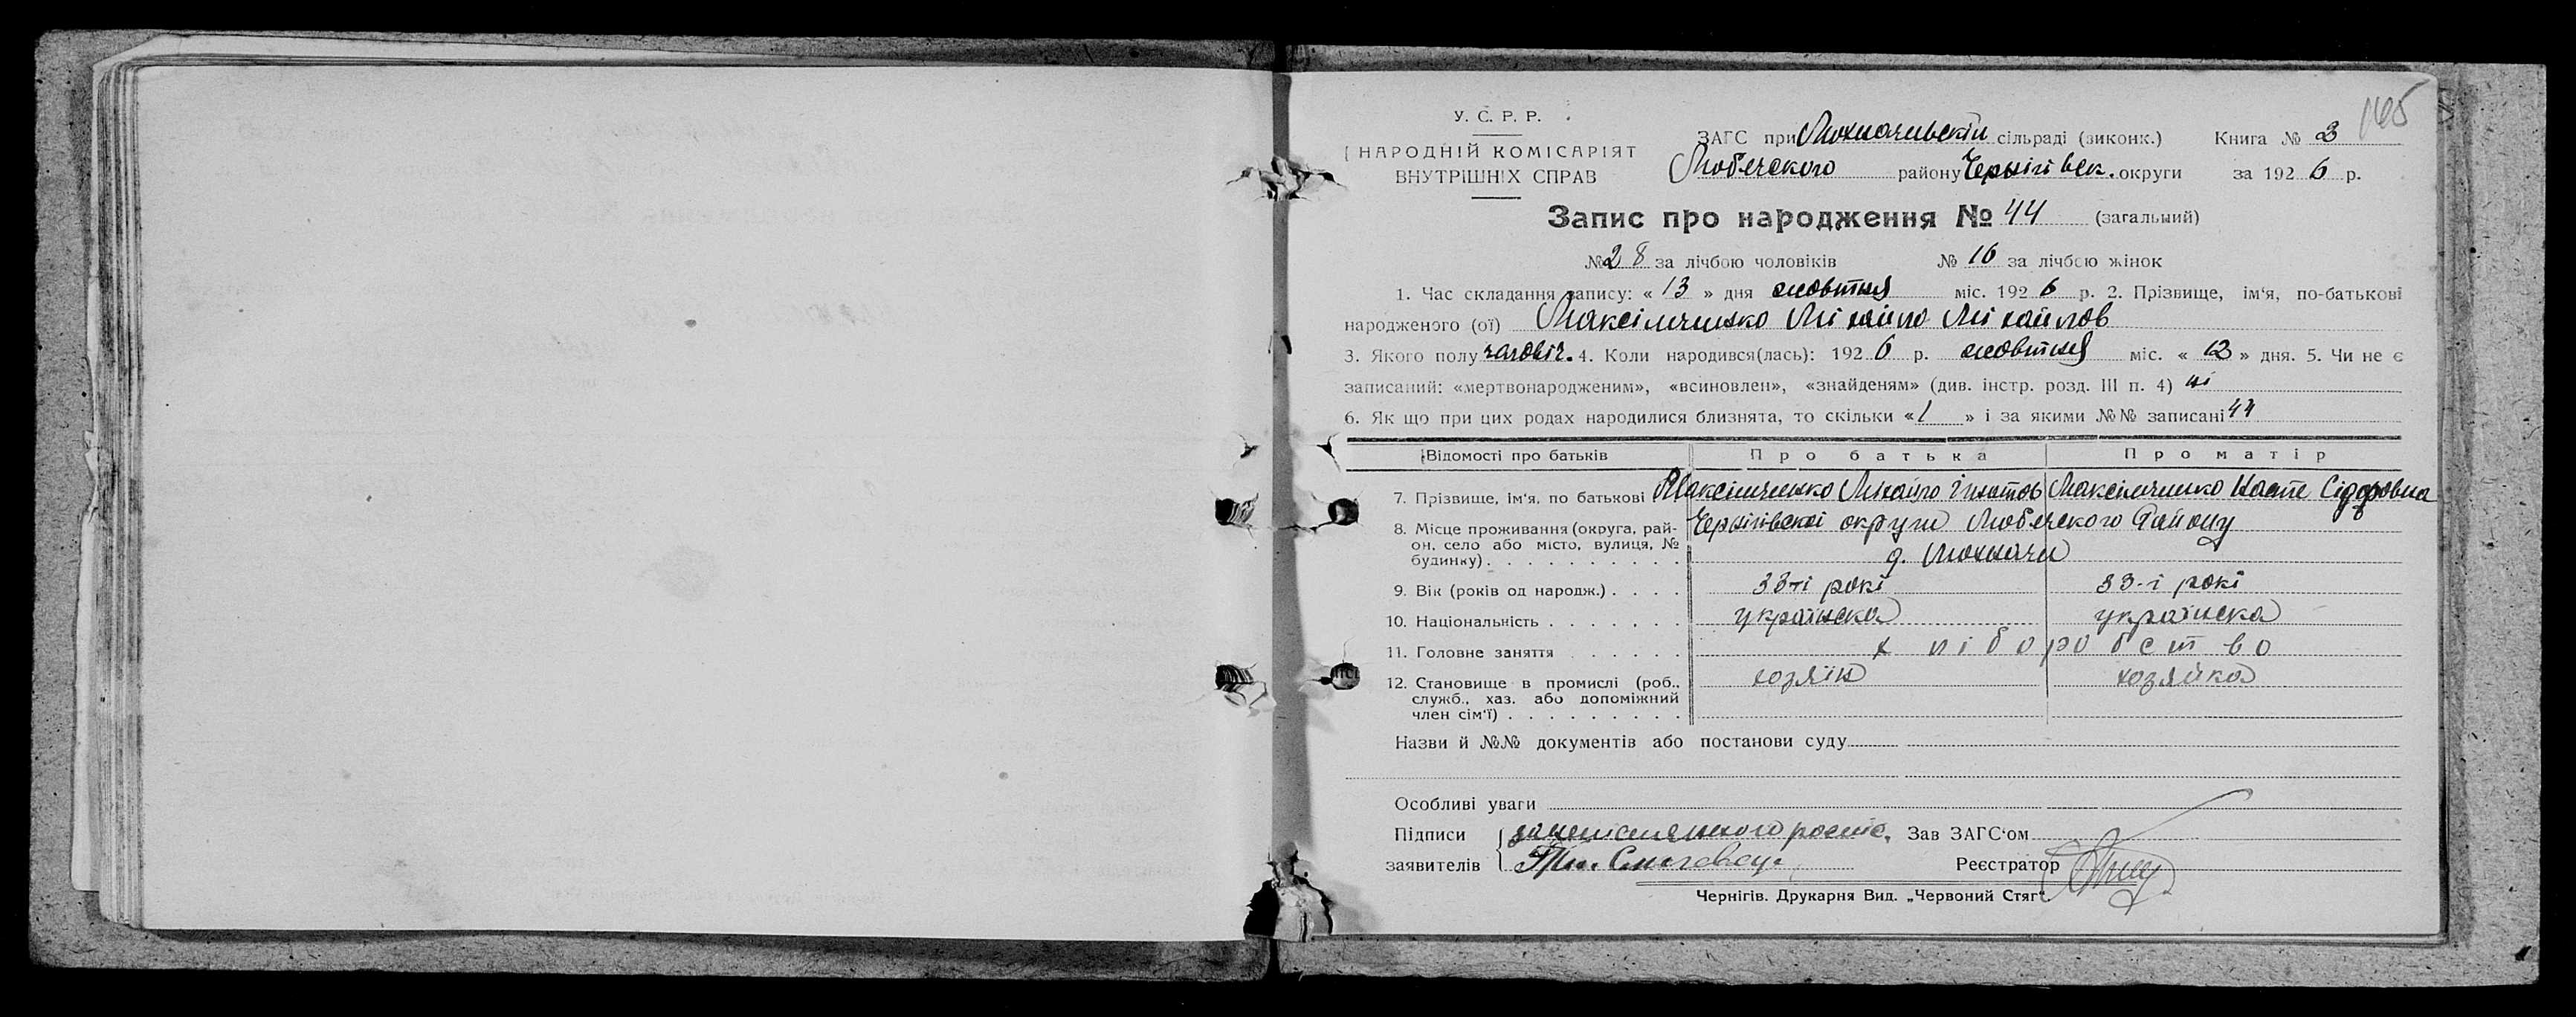 165
У. С. Р. Р.
НАРОДНІЙ КОМІСАРІЯТ
ВНУТРІШНІХ СПРАВ
ЗАГС при Мохначивскій сільраді (виконк.) Книга № 2
Любечского району Чернігівск. округи за 1926 р.
Запис про народження № 44 (загальний)
№ 28 за лічбою чоловіків № 16 за лічбою жінок
1. Час складання запису: « 13 » дня жовтня міс. 1926 р. 2. Прізвище, ім‘я, по-батькові
народженого (ої) Максімчинко Міхайло Міхайлов
3. Якого полу чаловіч. 4. Коли народився(лась): 1926 р. жовтня міс. « 12 » дня. 5. Чи не є
записаний: «мертвонародженим», «всиновлен», «знайденям» (див. інстр. розд. III п. 4) ні
6. Як що при цих родах народилися близнята, то скільки « 1 » і за якими №№ записані 44
Відомості про батьків Про батька Про матір
7. Прізвище, ім‘я, по батькові Максімчинко Міхайло Ігнатов Максімчинко Насте Сідоровна
8. Місце проживання (округа, рай- Чернігівскої округи Любечского Району
он, село або місто, вулиця, № д. Мохначи
будинку)
9. Вік (років од народж.) 33-ті рокі 33-і рокі
10. Національність украінска украінска
11. Головне заняття хліборобство
12. Становище в промислі (роб., хозяїн хозяйка
служб., хаз. або допоміжний
член сім‘ї)
Назви й №№ документів або постанови суду
Особливі уваги
Підписи Зав ЗАГС‘ом
заявителів Реєстратор
Чернігів. Друкарня Вид. „Червоний Стяг“.